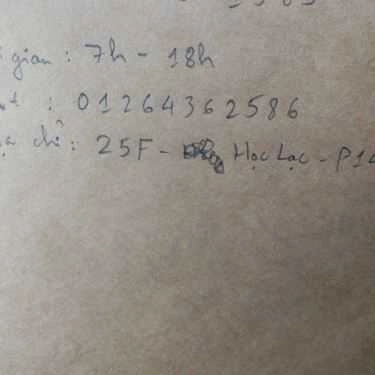 gian : 7h - 18h
: 01264362586
chỉ : 25F - Học Lạc - P14